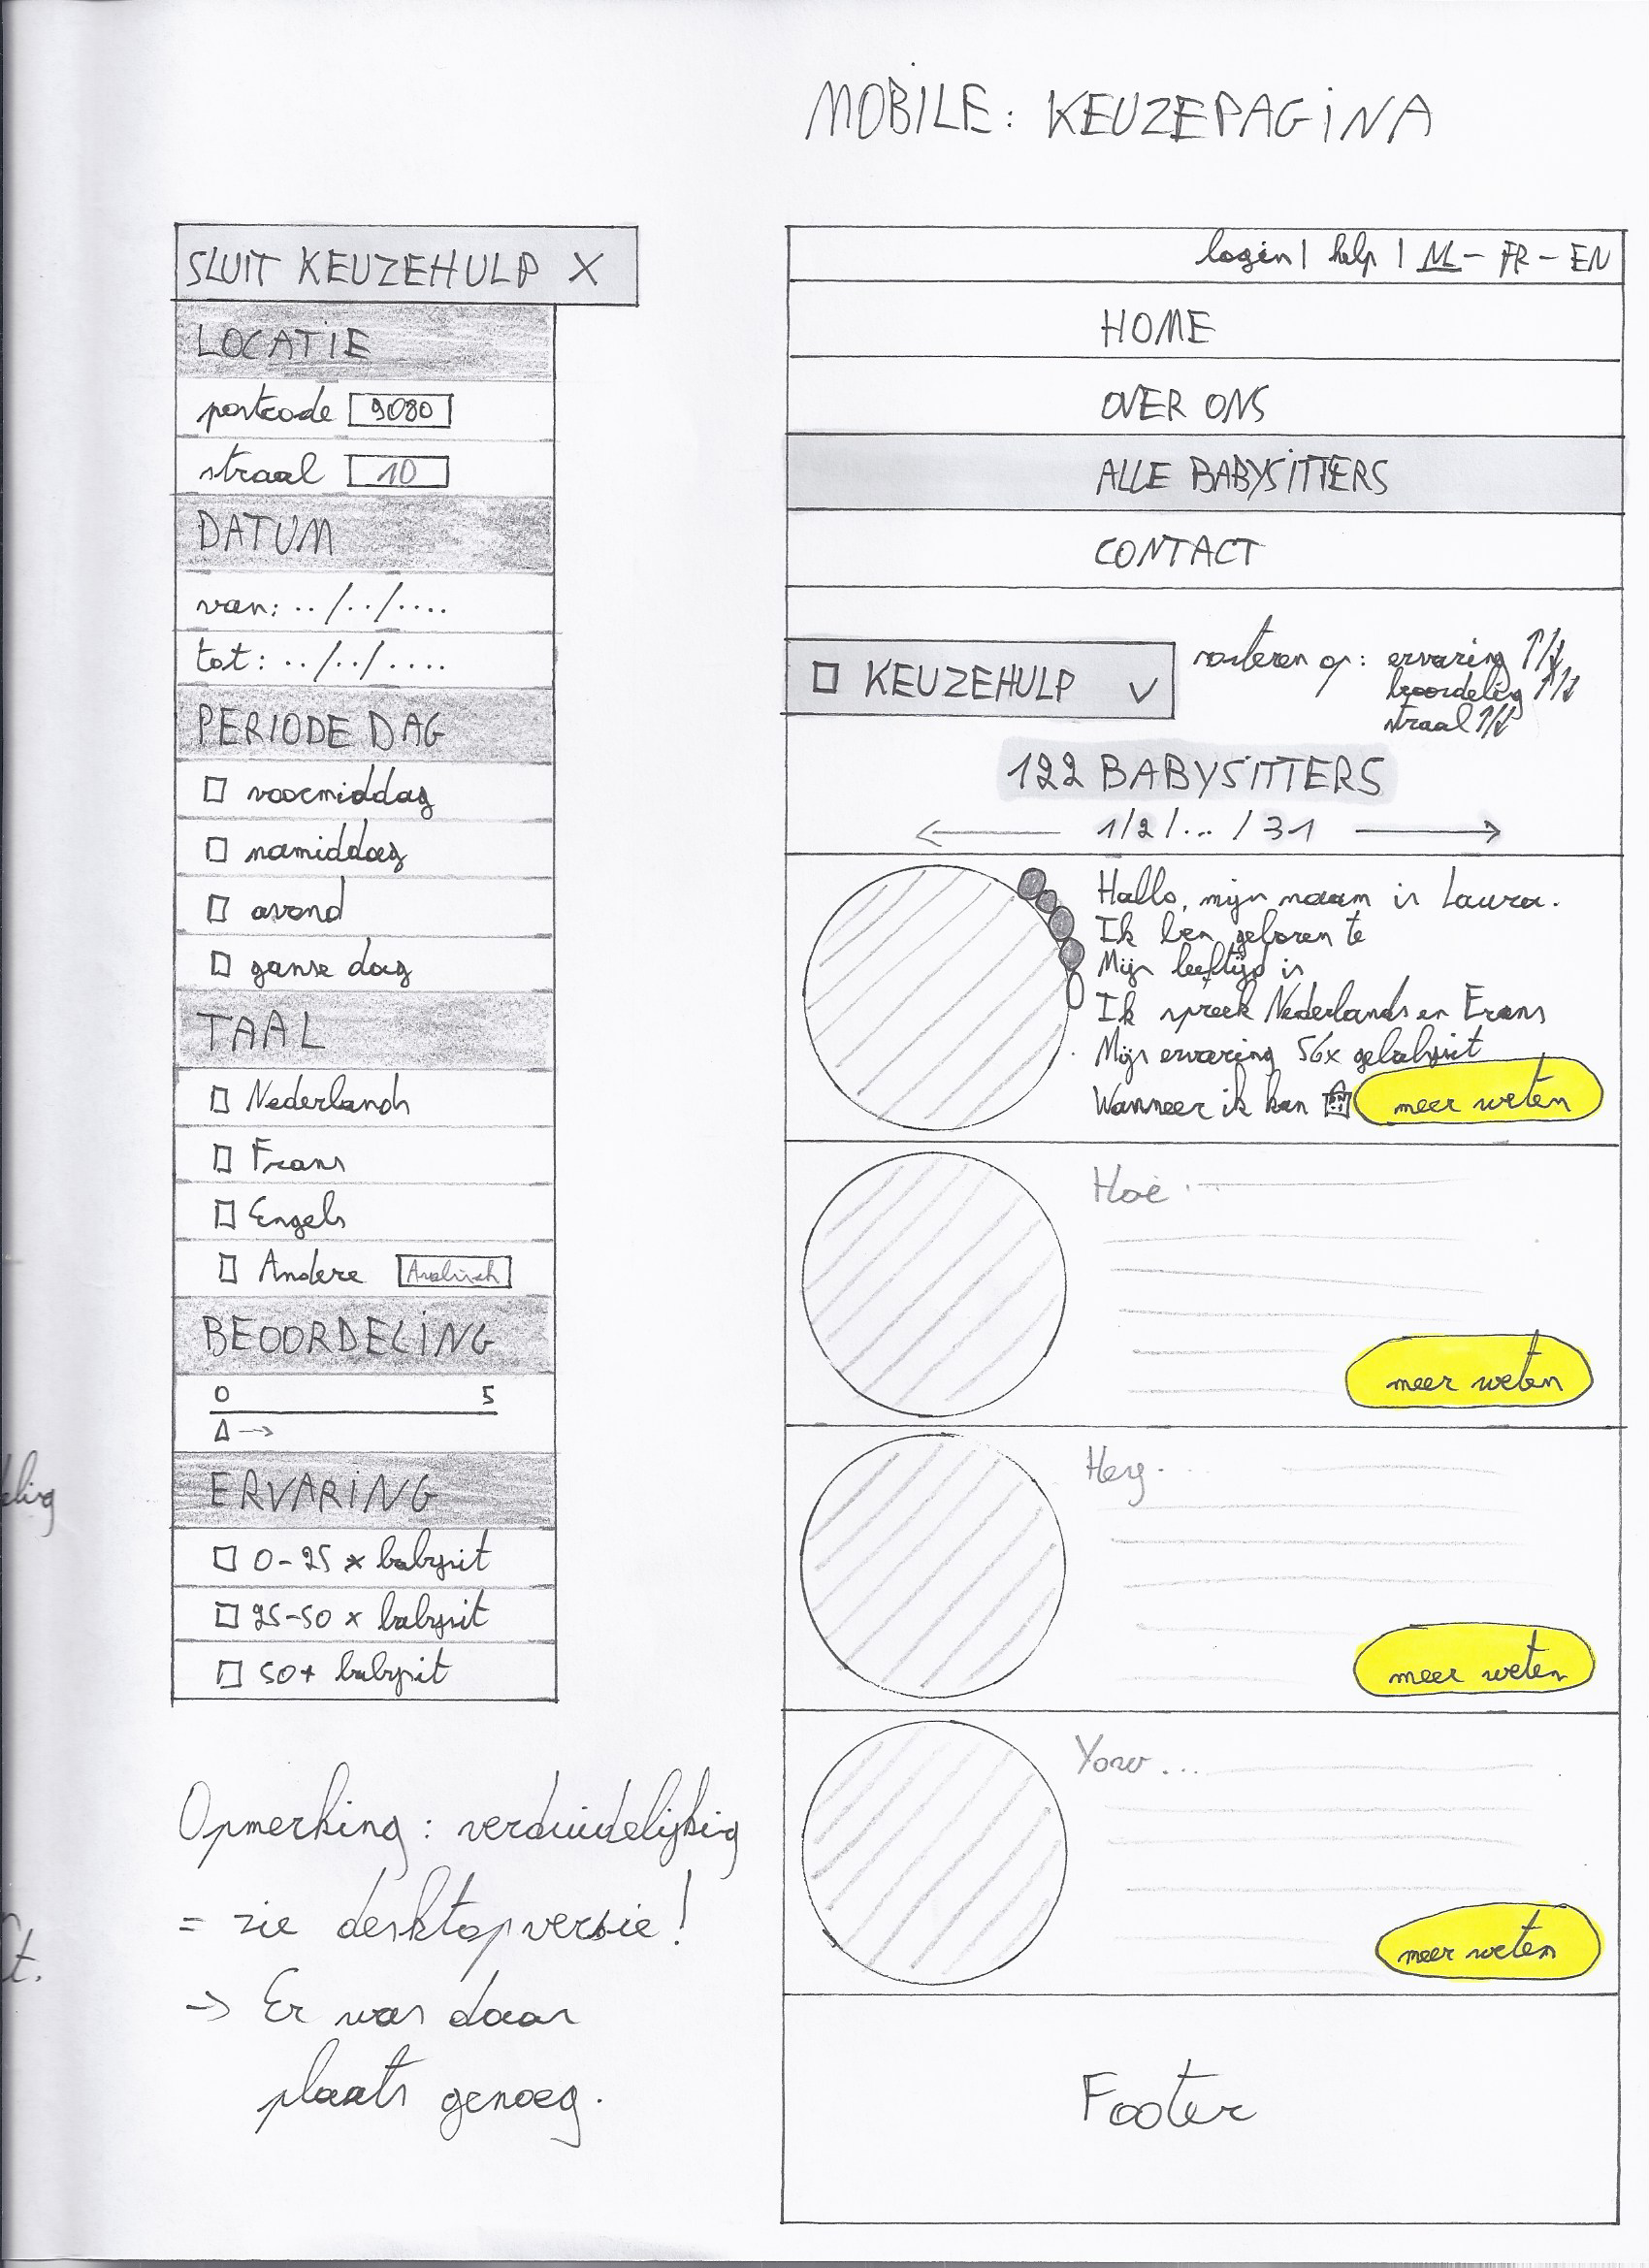 MOBILE: KEUZEPAGINA
SLUIT KEUZEHULP X
LOCATIE
postcode 9080
straal 10
DATUM
van: ../../....
tot: ../../....
PERIODE DAG
voormiddag
namiddag
avond
ganse dag
TAAL
Nederlands
Frans
Engels
Andere Arabisch
BEOORDELING
0 5
ERVARING
0-25 x babysit
25-50 x babysit
50+ babysit
Opmerking: verduidelijking
= zie desktopversie!
→ Er was daar
plaats genoeg.
login | help | NL - FR - EN
HOME
OVER ONS
ALLE BABYSITTERS
CONTACT
KEUZEHULP
sorteren op: ervaring ↑/↓
beoordeling ↑/↓
straal ↑/↓
122 BABYSITTERS
← 1/2/... /31 →
Hallo, mijn naam is Laura.
Ik ben geboren te
Mijn leeftijd is
Ik spreek Nederlands en Frans
Mijn ervaring 56x gebabysit
Wanneer ik kan meer weten
meer weten
Hey...
meer weten
Yow...
meer weten
Footer
t.